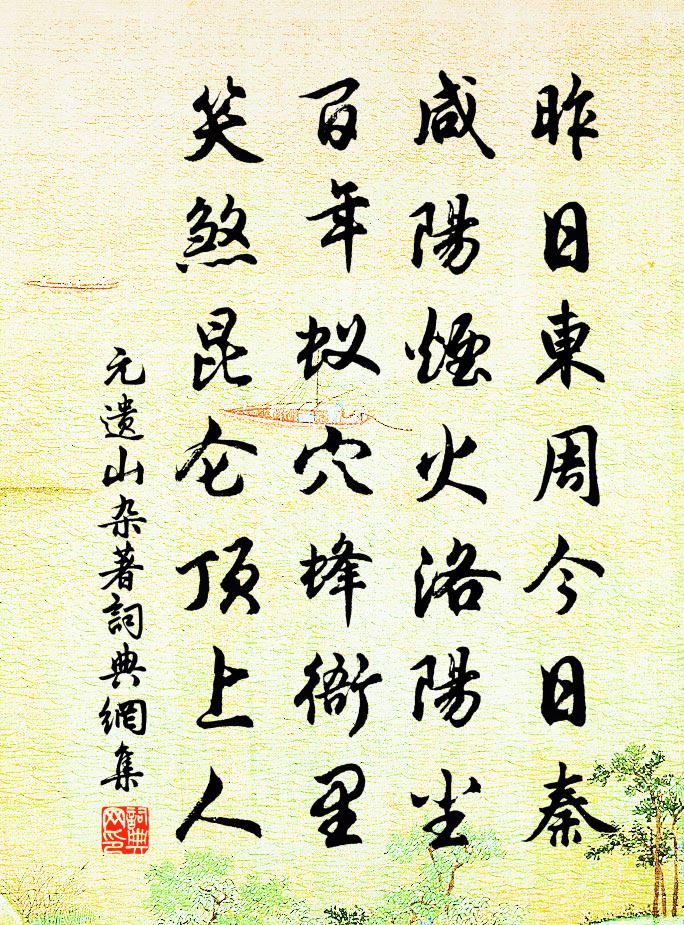 昨日東周今日秦
咸陽煙火洛陽尘
百年蚁穴蜂衙里
笑煞昆仑顶上人
元遗山杂著詞典網集
詞典网印